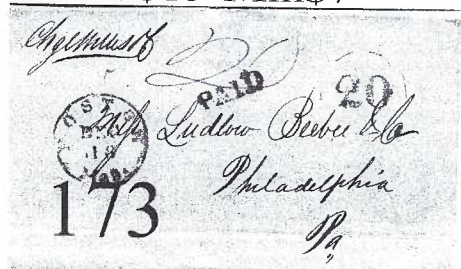 PAID
20
BOSTON
18
Ludlow Beebee & Co
Philadelphia
Pa
173